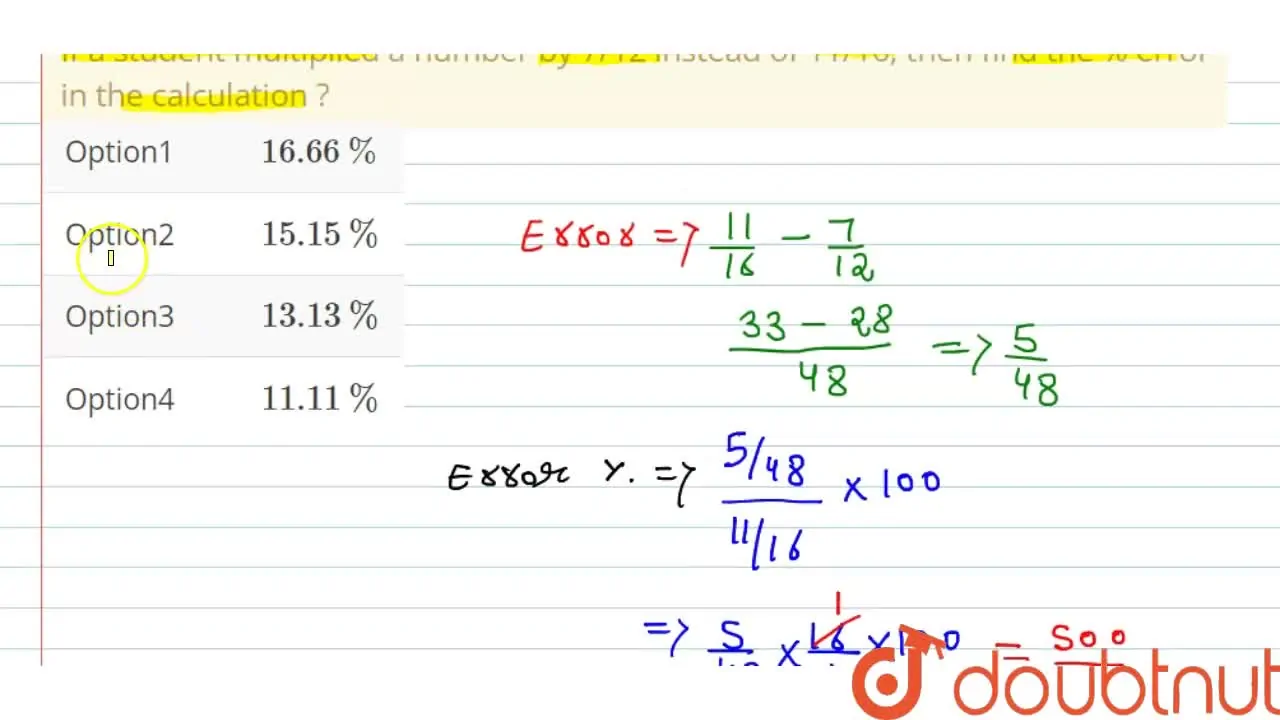 If a student multiplied a number by 7/12 instead of 11/16, then find the % error
in the calculation ?
Option1 16.66 %
Option2 15.15 %
Option3 13.13 %
Option4 11.11 %
Error => 11/16 - 7/12
33 - 28 / 48 => 5/48
Error %. => 5/48 / 11/16 × 100
=> 5/48 × 16/ ×100 = 500
1
doubtnut